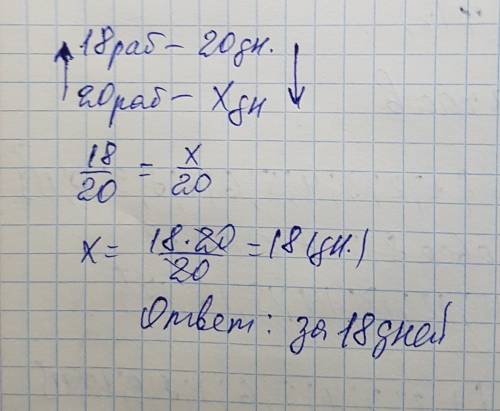 18раб – 20дн.
20раб – Xдн
18/20 = x/20
x = 18·20/20 = 18 (дн.)
Ответ: за 18 дней